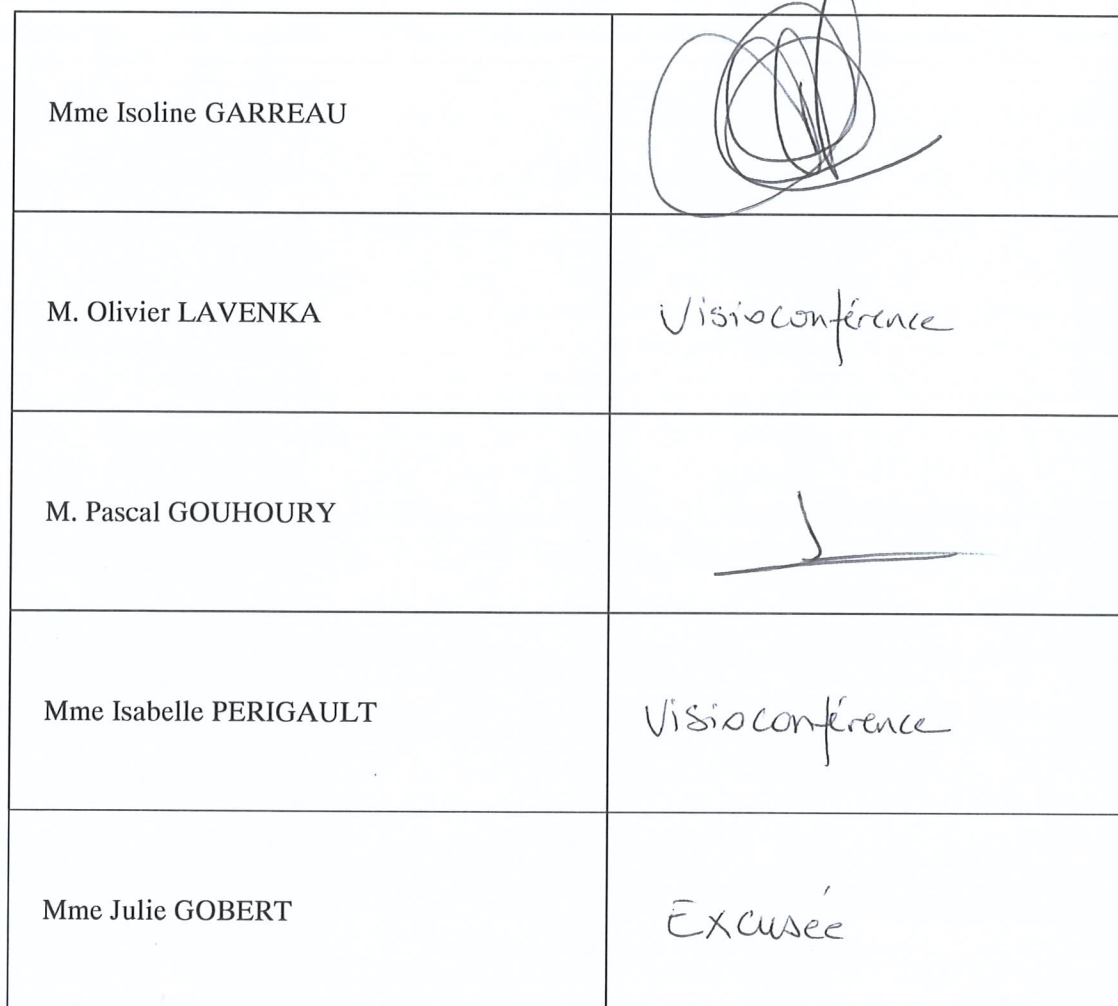 Mme Isoline GARREAU
M. Olivier LAVENKA
Visioconférence
M. Pascal GOUHOURY
Mme Isabelle PERIGAULT
Visioconférence
Mme Julie GOBERT
Excusée